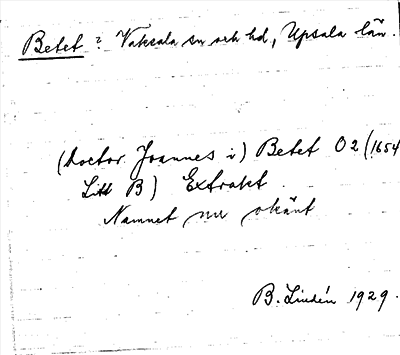 Betet ? Vaksala sn och hd, Upsala län.
(doctor Joannes i) Betet O2 (1654
Litt B) Extrakt.
Namnet nu okänt
B. Lindén 1929.